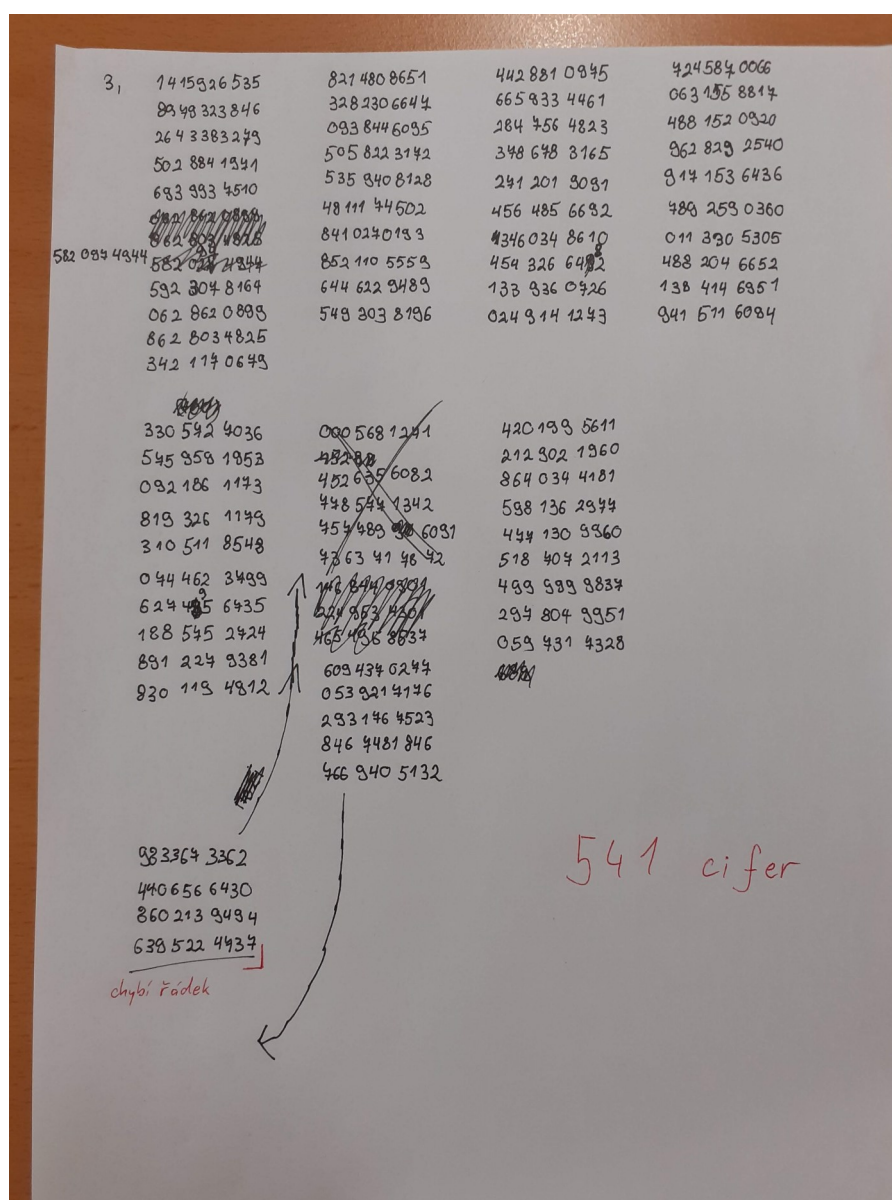 3, 1415926535
8979323846
2643383279
502 884 1971
693 993 7510
582 097 4944
592 307 8164
062 862 0899
862 803 4825
342 117 0679
821 480 8651
328 230 6647
093 844 6095
505 822 3172
535 940 8128
48111 74502
841 0270193
852 110 5559
644 622 9489
549 303 8196
442 881 0975
665 933 4461
284 756 4823
378 678 3165
271 201 9091
456 485 6692
346 034 8610
454 326 6482
133 936 0726
024 914 1273
724587 0066
063 155 8817
488 152 0920
962 829 2540
917 153 6436
789 259 0360
011 330 5305
488 204 6652
138 414 6951
941 511 6094
330 572 7036
575 959 1953
092 186 1173
819 326 1179
310 511 8548
074 462 3799
627 495 6735
188 575 2724
891 227 9381
830 119 4912
983367 3362
440 656 6430
860 213 9494
639 522 4737
chybí řádek
000 568 1271
452 635 6082
778 577 1342
757 789 6091
7363 71 78 72
609 437 0277
053 921 7176
293 176 7523
846 7481 846
766 940 5132
420 199 5611
212 902 1960
864 034 4181
598 136 2977
477 130 9960
518 707 2113
499 999 9837
297 804 9951
059 731 7328
541 cifer